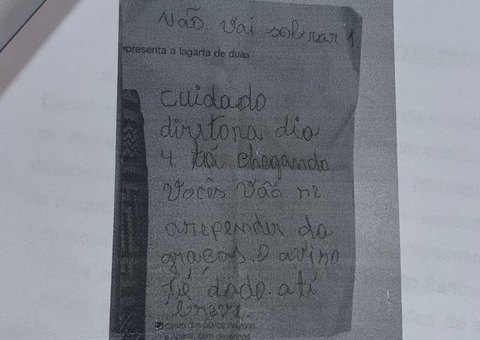 Não vai sobrar 1
presenta a lagarta de duas
cuidado
diretona dia
4 tá chegando
Vocês vão se
arrepender da
graças. o aviso
tá dado. até
breve.